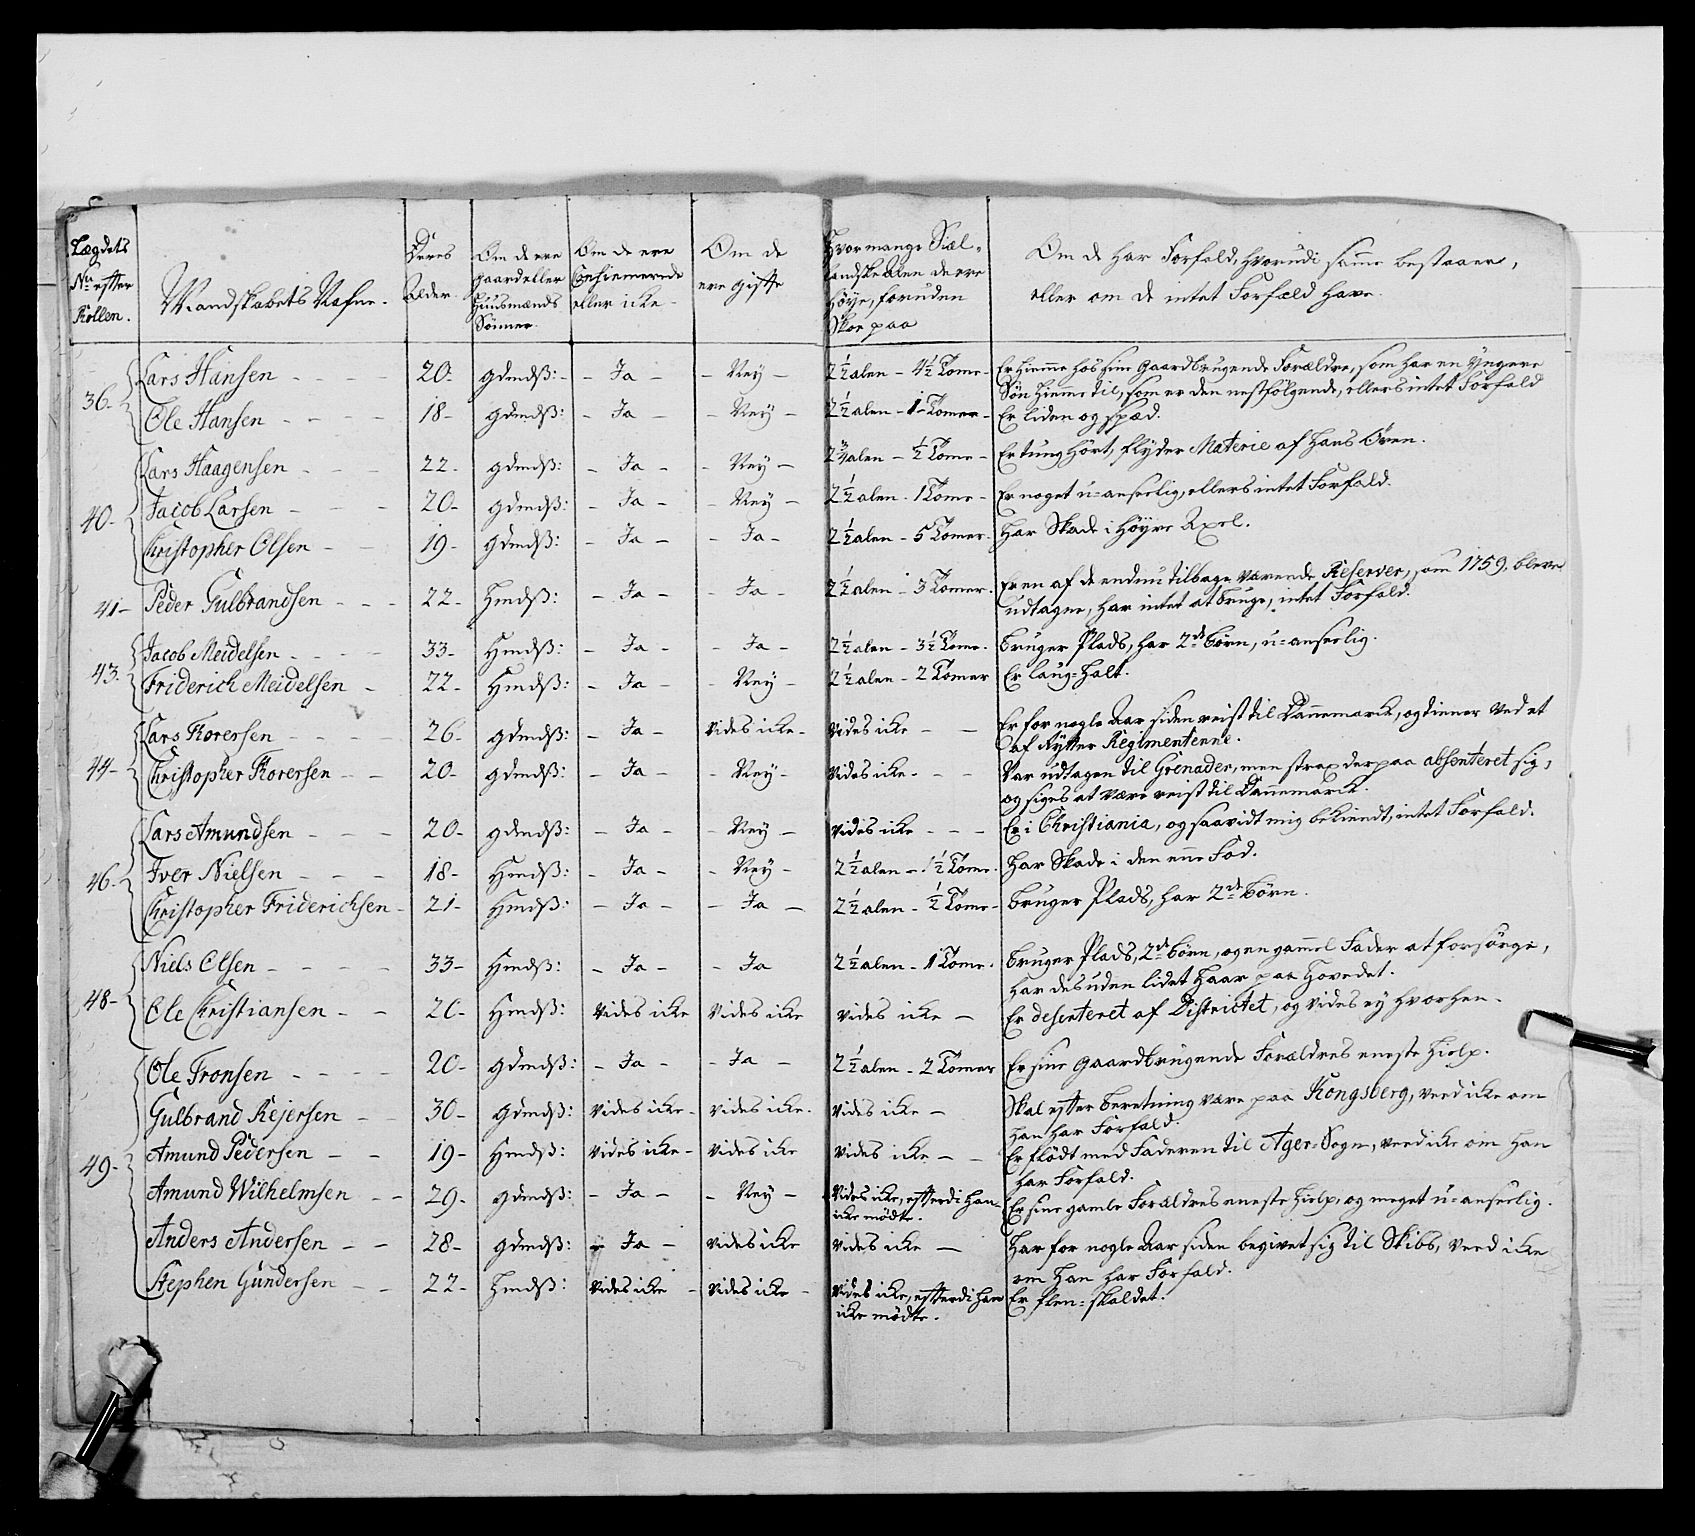 Lægdets
No efter
Rollen.
Mandskabets Nafne.
Deres
Alder.
Om de ere
Gaard eller
Huusmænds
Sønner.
Om de ere
Enrollerede
eller icke
Om de
ere gifte
Hvor mange Siæl-
landske Alen de ere
Høye, foruden
Skoe paa
Om de har Forfald, hvorudi samme bestaaer,
eller om de intet Forfald have.
36. Lars Hansen 20. gdmdß: Ja Ney 2½ alen 4½ Tome Er hiemme hos sine gaardbrugende Forældre, som har en yngere
Søn hiemme til, som er den nestfølgende, ellers intet Forfald
Ole Hansen 18 gdmdß: Ja Ney 2½ alen 1 Tomer Er liden og spæd.
40. Lars Haagensen 22 gdmdß: Ja Ney 2¾ alen ½ Tome Er tung hørt, flyder Materie af hans Øren.
Jacob Larsen 20 gdmdß: Ja Ney 2½ alen 1 Tome Er noget u-anseelig, ellers intet Forfald.
Christopher Olsen 19 gdmdß: Ja Ja 2½ alen 5 Tomer. Har Skade i høyre Axel.
41 Peder Gulbrandsen 22 Hmdß: Ja Ja 2½ alen 3 Tomer. Er en af de endnu tilbage værende Reserver, som 1759. bleve
udtagne, har intet at bruge, intet Forfald.
43. Jacob Meidelsen 33 Hmdß: Ja Ja 2½ alen 3½ Tome. Bruger Plads, har 2de Børn, u-anseelig.
Friderich Meidelsen 22 Hmdß: Ja Ney 2½ alen 2 Tomer Er laug-halt.
44 Lars Torersen 26 gdmdß: Ja Vides icke Vides icke Er for nogle Aar siden reist til Dannemarck, og tiener ved et
af Rytter Regimenterne.
Christopher Torersen 20 gdmdß: Ja Ney Vides icke. Var udtagen til Grenader, men strax derpaa absenteret sig,
og siges at være reist til Dannemarck.
46. Lars Amundsen 20 gdmdß: Ja Ney Vides icke Er i Christiania, og saavidt mig bekiendt, intet Forfald.
Iver Nielsen 18 Hmdß: Ja Ney 2½ alen 1½ Tome. Har Skade i den ene Fod.
Christopher Friderichsen 21 Hmdß: Ja Ja 2½ alen ½ Tome Bruger Plads, har 2de Børn.
48 Niels Olsen 33 Hmdß: Ja Ja 2½ alen 1 Tome. Bruger Plads, 2de Børn, og en gammel Fader at forsørge,
har desuden lidet Haar paa Hovedet.
Ole Christiansen 26 Hmdß: Vides icke Vides icke Vides icke Er desenteret af Districtet, og vides ey hvorhen.
49 Ole Tronsen 20 gdmdß: Ja Ja 2½ alen 2 Tomer Er sine gaardbrugende Forældres eneste Hielp.
Gulbrand Rejersen 30 gdmdß: Vides icke Vides icke. Vides icke Skal efter Beretning være paa Kongsberg, veed icke om
han har Forfald.
Amund Pedersen 19 Hmdß: Vides icke Vides icke Vides icke Er flødt med Faderen til Ager-Sogn, veed icke om han
har Forfald.
Amund Wilhelmsen 29 gdmdß: Ja Ney Vides icke, efterdi han
icke mødte. Er sine gamle Forældres eneste Hielp, og meget u-anseelig.
Anders Andersen 28 gdmdß: Ja Vides icke Vides icke Har for nogle Aar siden begivet sig til Skibs, veed icke
om han har Forfald.
Stephen Gundersen 22 Hmdß: Vides icke Vides icke Vides icke, efterdi han
icke mødte. Er flen-skaldet.